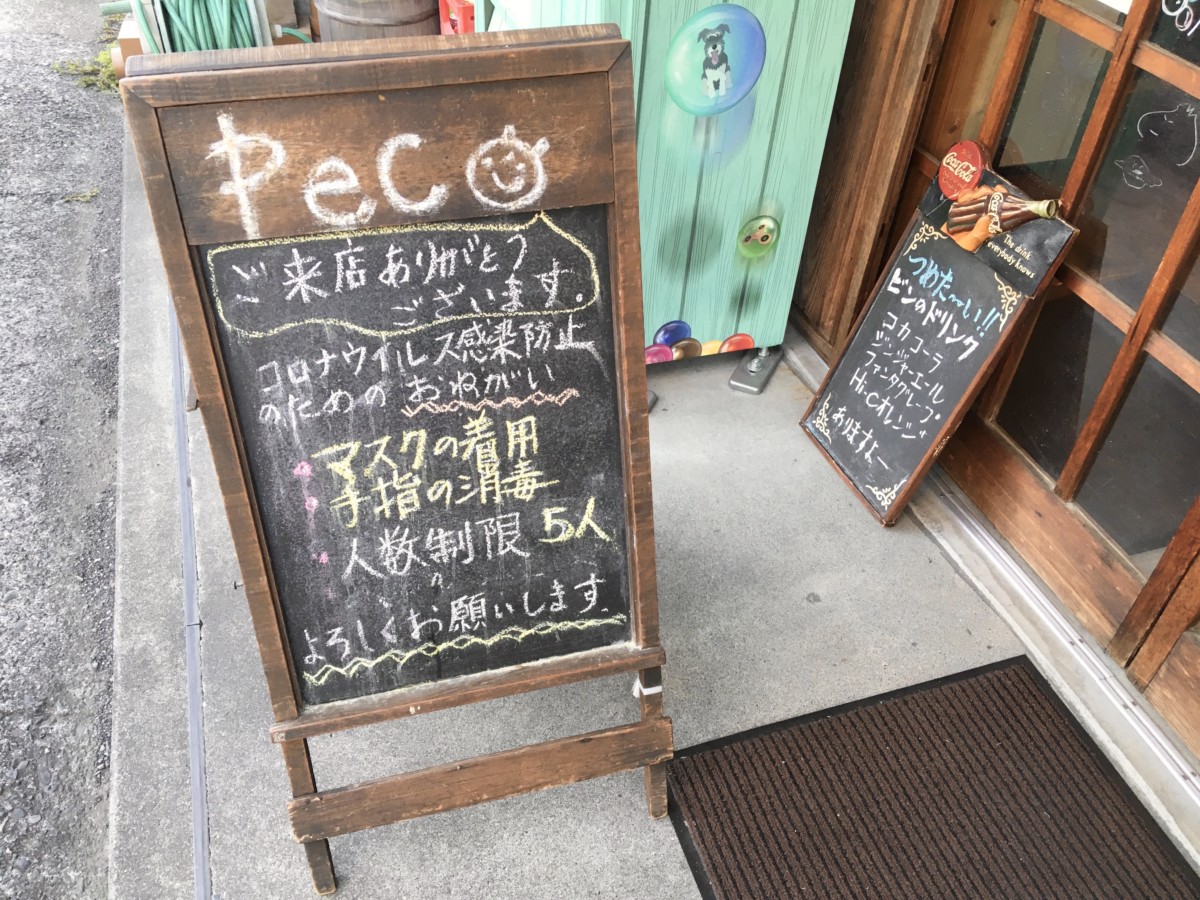 Peco
ご来店ありがとう
ございます。
コロナウイルス感染防止
のための おねがい
マスクの着用
手指の消毒
人数制限 5人
よろしくお願いします。
Coca-Cola
The drink
everybody knows
つめた〜い!!
ビンのドリンク
コカコーラ
ジンジャーエール
ファンタグレープ
Hi-Cオレンジ
ありますよー